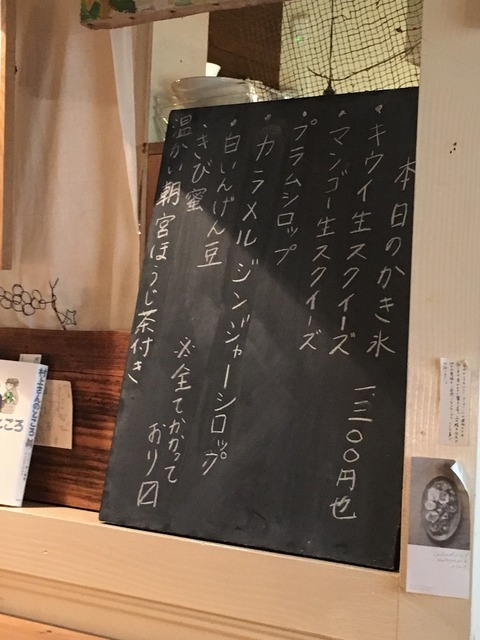 本日のかき氷
一、三〇〇円也
・キウイ生スクイーズ
・マンゴー生スクイーズ
・プラムシロップ
・カラメルジンジャーシロップ
・白いんげん豆
・きび蜜
※全てかかって
おり〼
温かい朝宮ほうじ茶付き
村上さんのところ